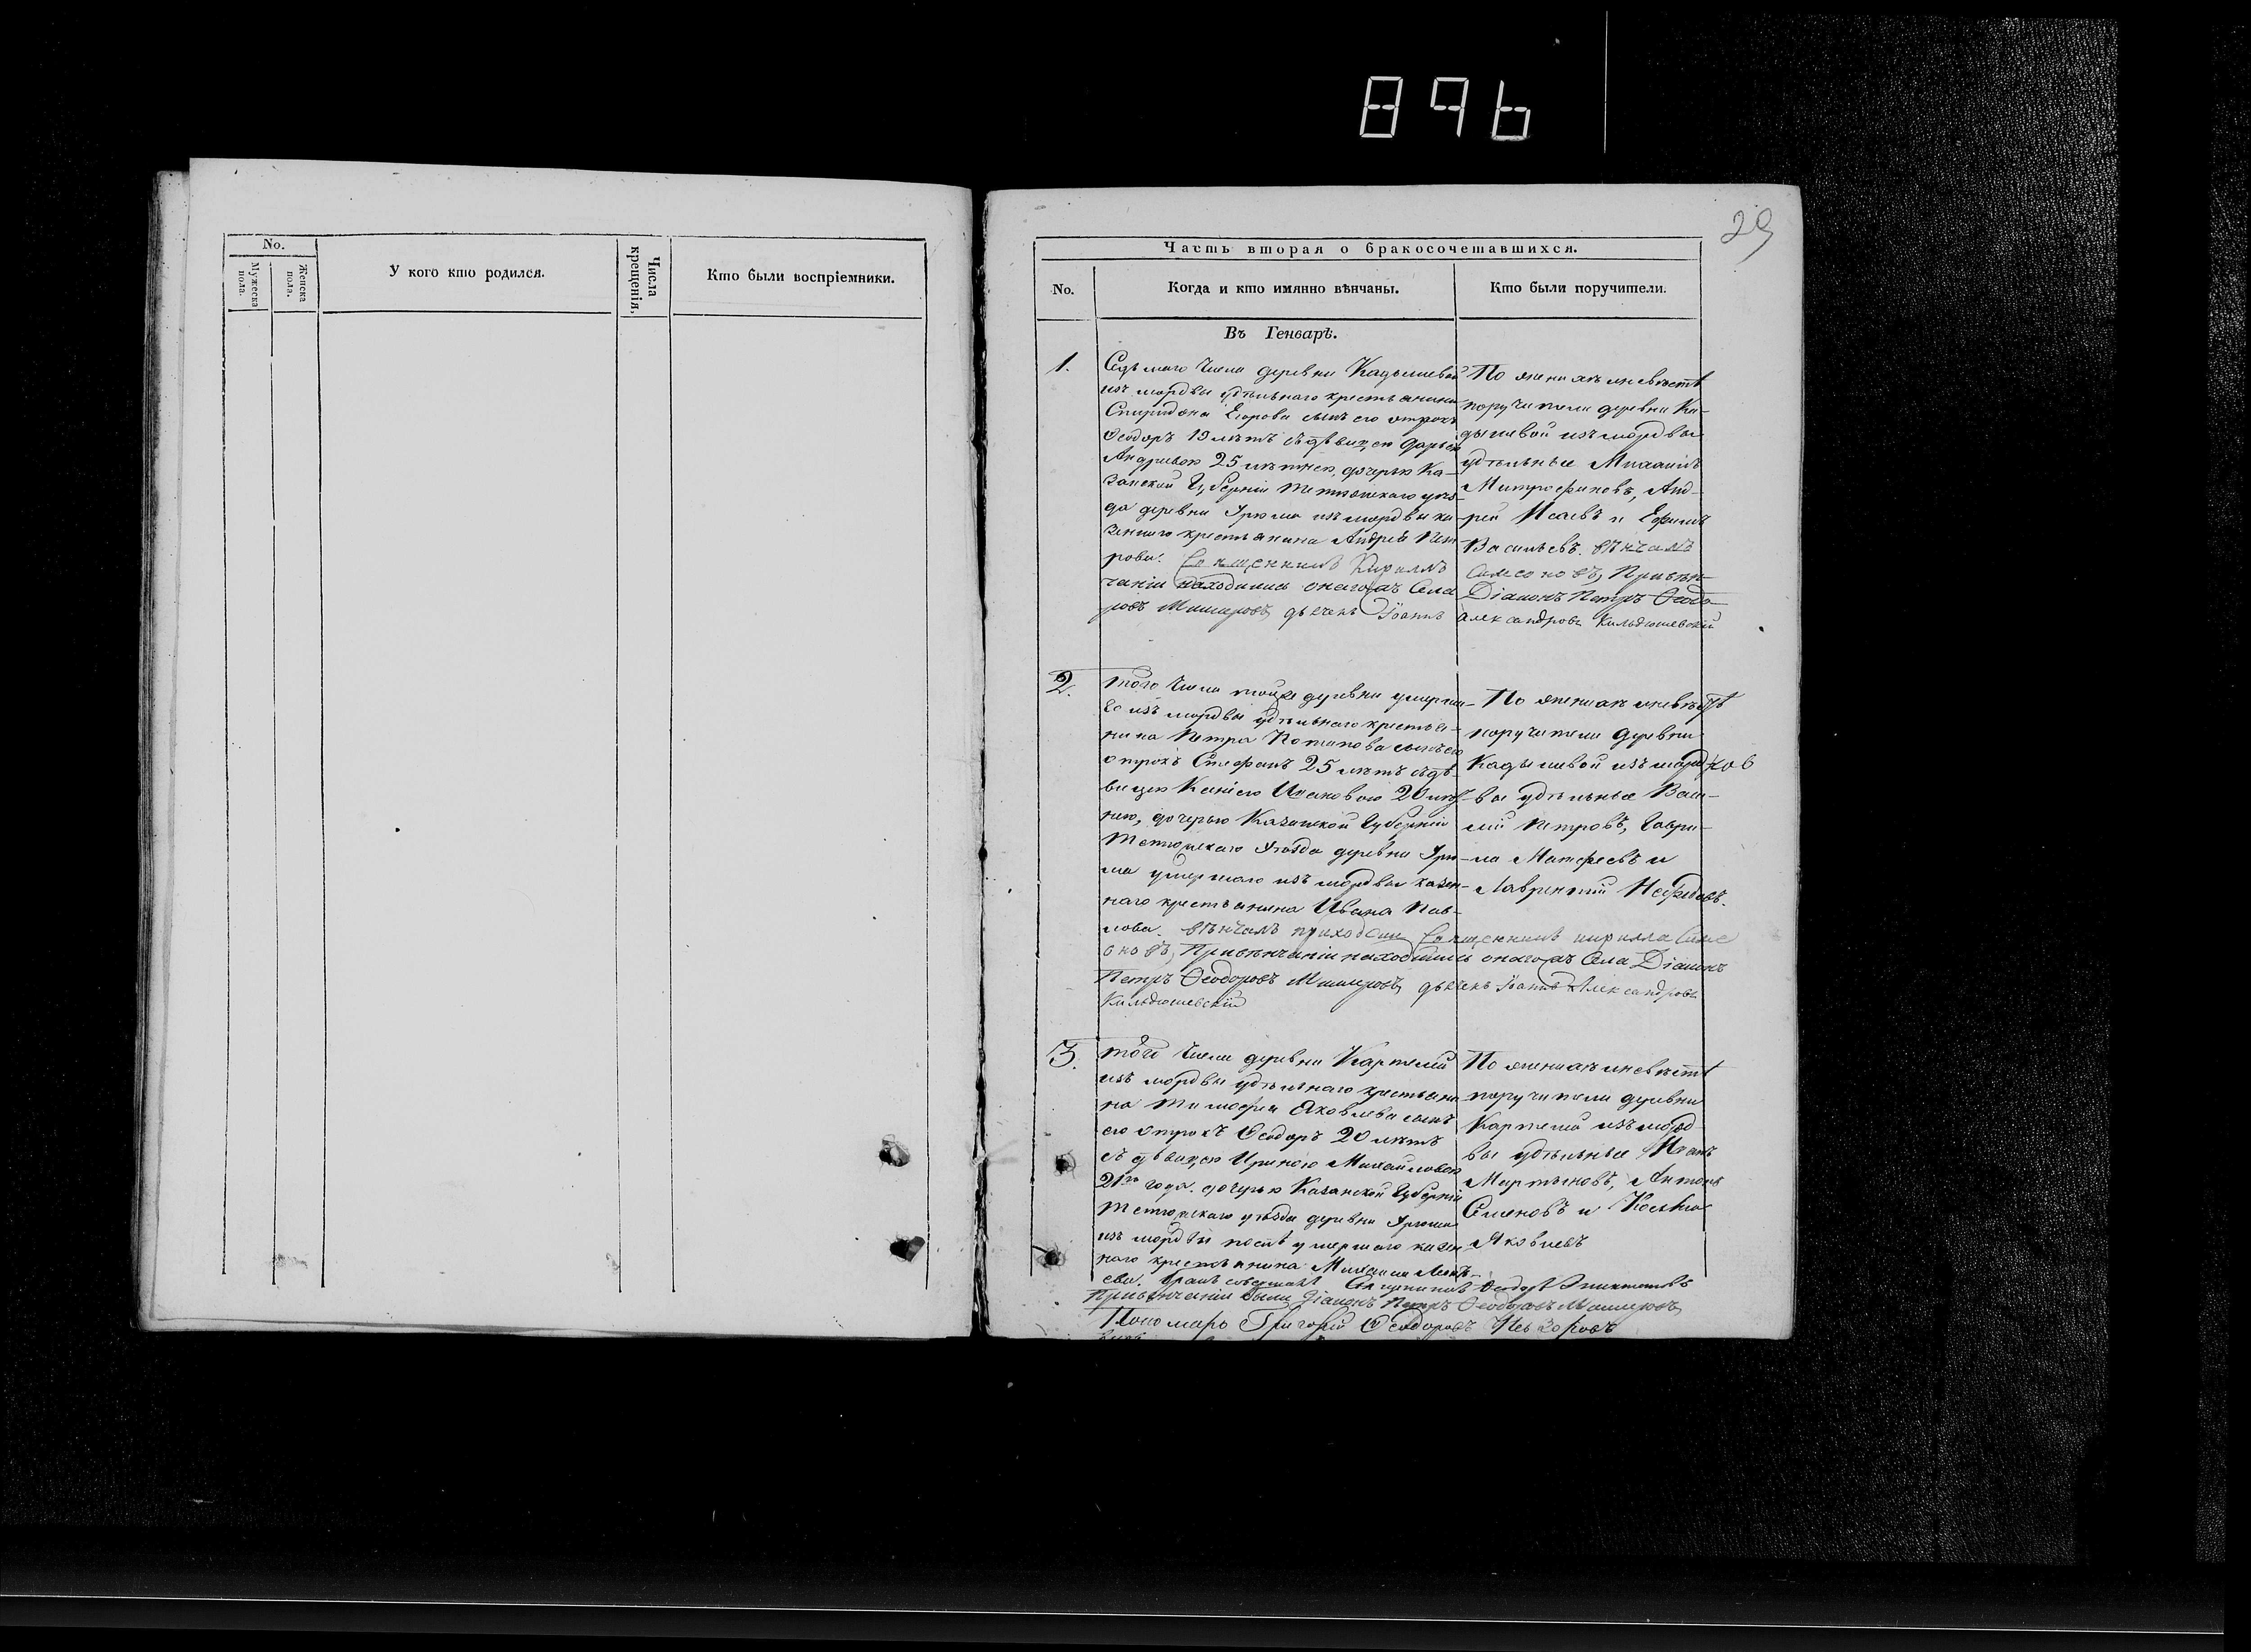 896
No.
Мужеска пола.
Женска пола.
У кого кто родился.
Числа крещенія.
Кто были воспріемники.
29
Часть вторая о бракосочетавшихся.
No.
Когда и кто имянно вѣнчаны.
Кто были поручители.
Въ Генварѣ.
1.
Седьмаго числа деревни Кадышевой
изъ мордвы удѣльнаго крестьянина
Спиридона Егорова сынъ его отрокъ
Ѳеодоръ 19 лѣтъ съ дѣвицею Дарьею
Андреевою 25 лѣтнею, дочерью Ка-
занской Губерніи Тетюшскаго уѣз-
да деревни Урюма изъ мордвы ка-
зеннаго крестьянина Андрея Пет
рова. Священникъ Кириллъ
чаніи находились онагожъ Села
ровъ Мишеровъ, дьячекъ Іоаннъ
По женихѣ и невѣстѣ
поручители деревни Ка-
дышевой изъ мордвы
удѣльные Михаилъ
Митрофановъ, Анд-
рей Исаевъ и Ефимъ
Васильевъ. вѣнчалъ
Симеоновъ, Привѣн-
Діаконъ Петръ Ѳеодо-
Александровъ Кильдюшевскій
2.
того числа тойже деревни умерша-
го изъ мордвы удѣльнаго крестья-
нина Петра Потапова сынъ его
отрокъ Стефанъ 25 лѣтъ съ дѣ-
вицею Ивановою 20 лѣт-
нею, дочерью Казанской Губерніи
Тетюшскаго Уѣзда деревни Урю-
ма умершаго изъ мордвы казен-
наго крестьянина Ивана Пав-
лова. вѣнчалъ приходскій Священникъ кирилла Симе
оновъ, Привѣнчаніи находились онагожъ Села Діаконъ
Петръ Ѳеодоровъ Мишеровъ, дьячекъ Іоаннъ Александровъ
Кильдюшевскій
По женихѣ и невѣстѣ
поручители деревни
Кадышевой изъ морд
вы удѣльные Васи-
лій Петровъ, Гаври-
ла Матфеевъ и
Лаврентій Нефедовъ.
3.
того числа деревни Картлей
изъ мордвы удѣльнаго крестьяни
на Тимофея Яковлева сынъ
его отрокъ Ѳеодоръ 20 лѣтъ
съ дѣвицею Ириною Михайловою
21го года. дочерью Казанской Губерніи
Тетюшскаго уѣзда деревни Урюма
изъ мордвы послѣ умершаго казен
наго крестьянина Михаила
ева. бракъ совершалъ Священникъ Ѳеодоръ
Привѣнчаніи были Діаконъ Петръ Ѳеодоровъ Мишеровъ
Пономарь Григорій Ѳеодоровъ
По женихѣ и невѣстѣ
поручители деревни
Картлей изъ морд
вы удѣльные Иванъ
Мартыновъ, Антонъ
Семеновъ и Козьма
Яковлевъ